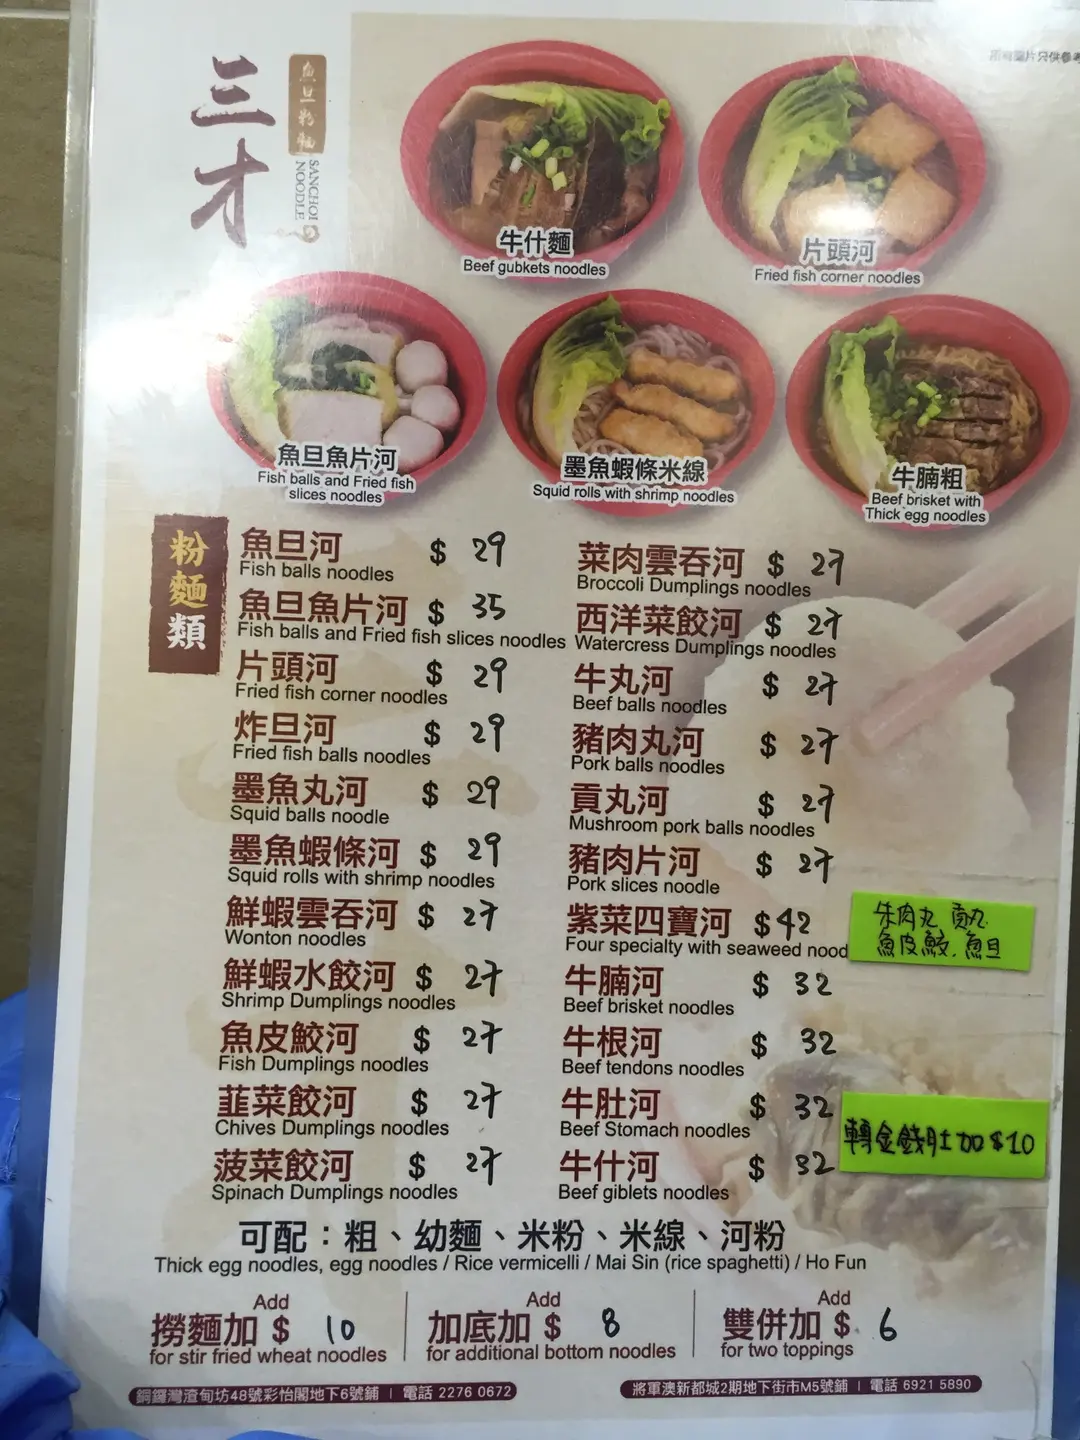 三才
魚旦粉麵
SANCHOI
NOODLE
牛什麵
Beef gubkets noodles
片頭河
Fried fish corner noodles
魚旦魚片河
Fish balls and Fried fish
slices noodles
墨魚蝦條米線
Squid rolls with shrimp noodles
牛腩粗
Beef brisket with
Thick egg noodles
粉麵類
魚旦河 $ 29
Fish balls noodles
魚旦魚片河 $ 35
Fish balls and Fried fish slices noodles
片頭河 $ 29
Fried fish corner noodles
炸旦河 $ 29
Fried fish balls noodles
墨魚丸河 $ 29
Squid balls noodle
墨魚蝦條河 $ 29
Squid rolls with shrimp noodles
鮮蝦雲吞河 $ 27
Wonton noodles
鮮蝦水餃河 $ 27
Shrimp Dumplings noodles
魚皮鮫河 $ 27
Fish Dumplings noodles
韮菜餃河 $ 27
Chives Dumplings noodles
菠菜餃河 $ 27
Spinach Dumplings noodles
菜肉雲吞河 $ 27
Broccoli Dumplings noodles
西洋菜餃河 $ 27
Watercress Dumplings noodles
牛丸河 $ 27
Beef balls noodles
豬肉丸河 $ 27
Pork balls noodles
貢丸河 $ 27
Mushroom pork balls noodles
豬肉片河 $ 27
Pork slices noodle
紫菜四寶河 $42
Four specialty with seaweed nood
肉丸 貢丸
魚皮鮫．魚旦
牛腩河 $ 32
Beef brisket noodles
牛根河 $ 32
Beef tendons noodles
牛肚河 $ 32
Beef Stomach noodles
轉金錢肚加$10
牛什河 $ 32
Beef giblets noodles
可配：粗、幼麵、米粉、米線、河粉
Thick egg noodles, egg noodles / Rice vermicelli / Mai Sin (rice spaghetti) / Ho Fun
Add
撈麵加 $ 10
for stir fried wheat noodles
Add
加底加 $ 8
for additional bottom noodles
Add
雙併加 $ 6
for two toppings
銅鑼灣渣甸坊48號彩怡閣地下6號鋪 | 電話 2276 0672
將軍澳新都城2期地下街市M5號鋪 | 電話 6921 5890